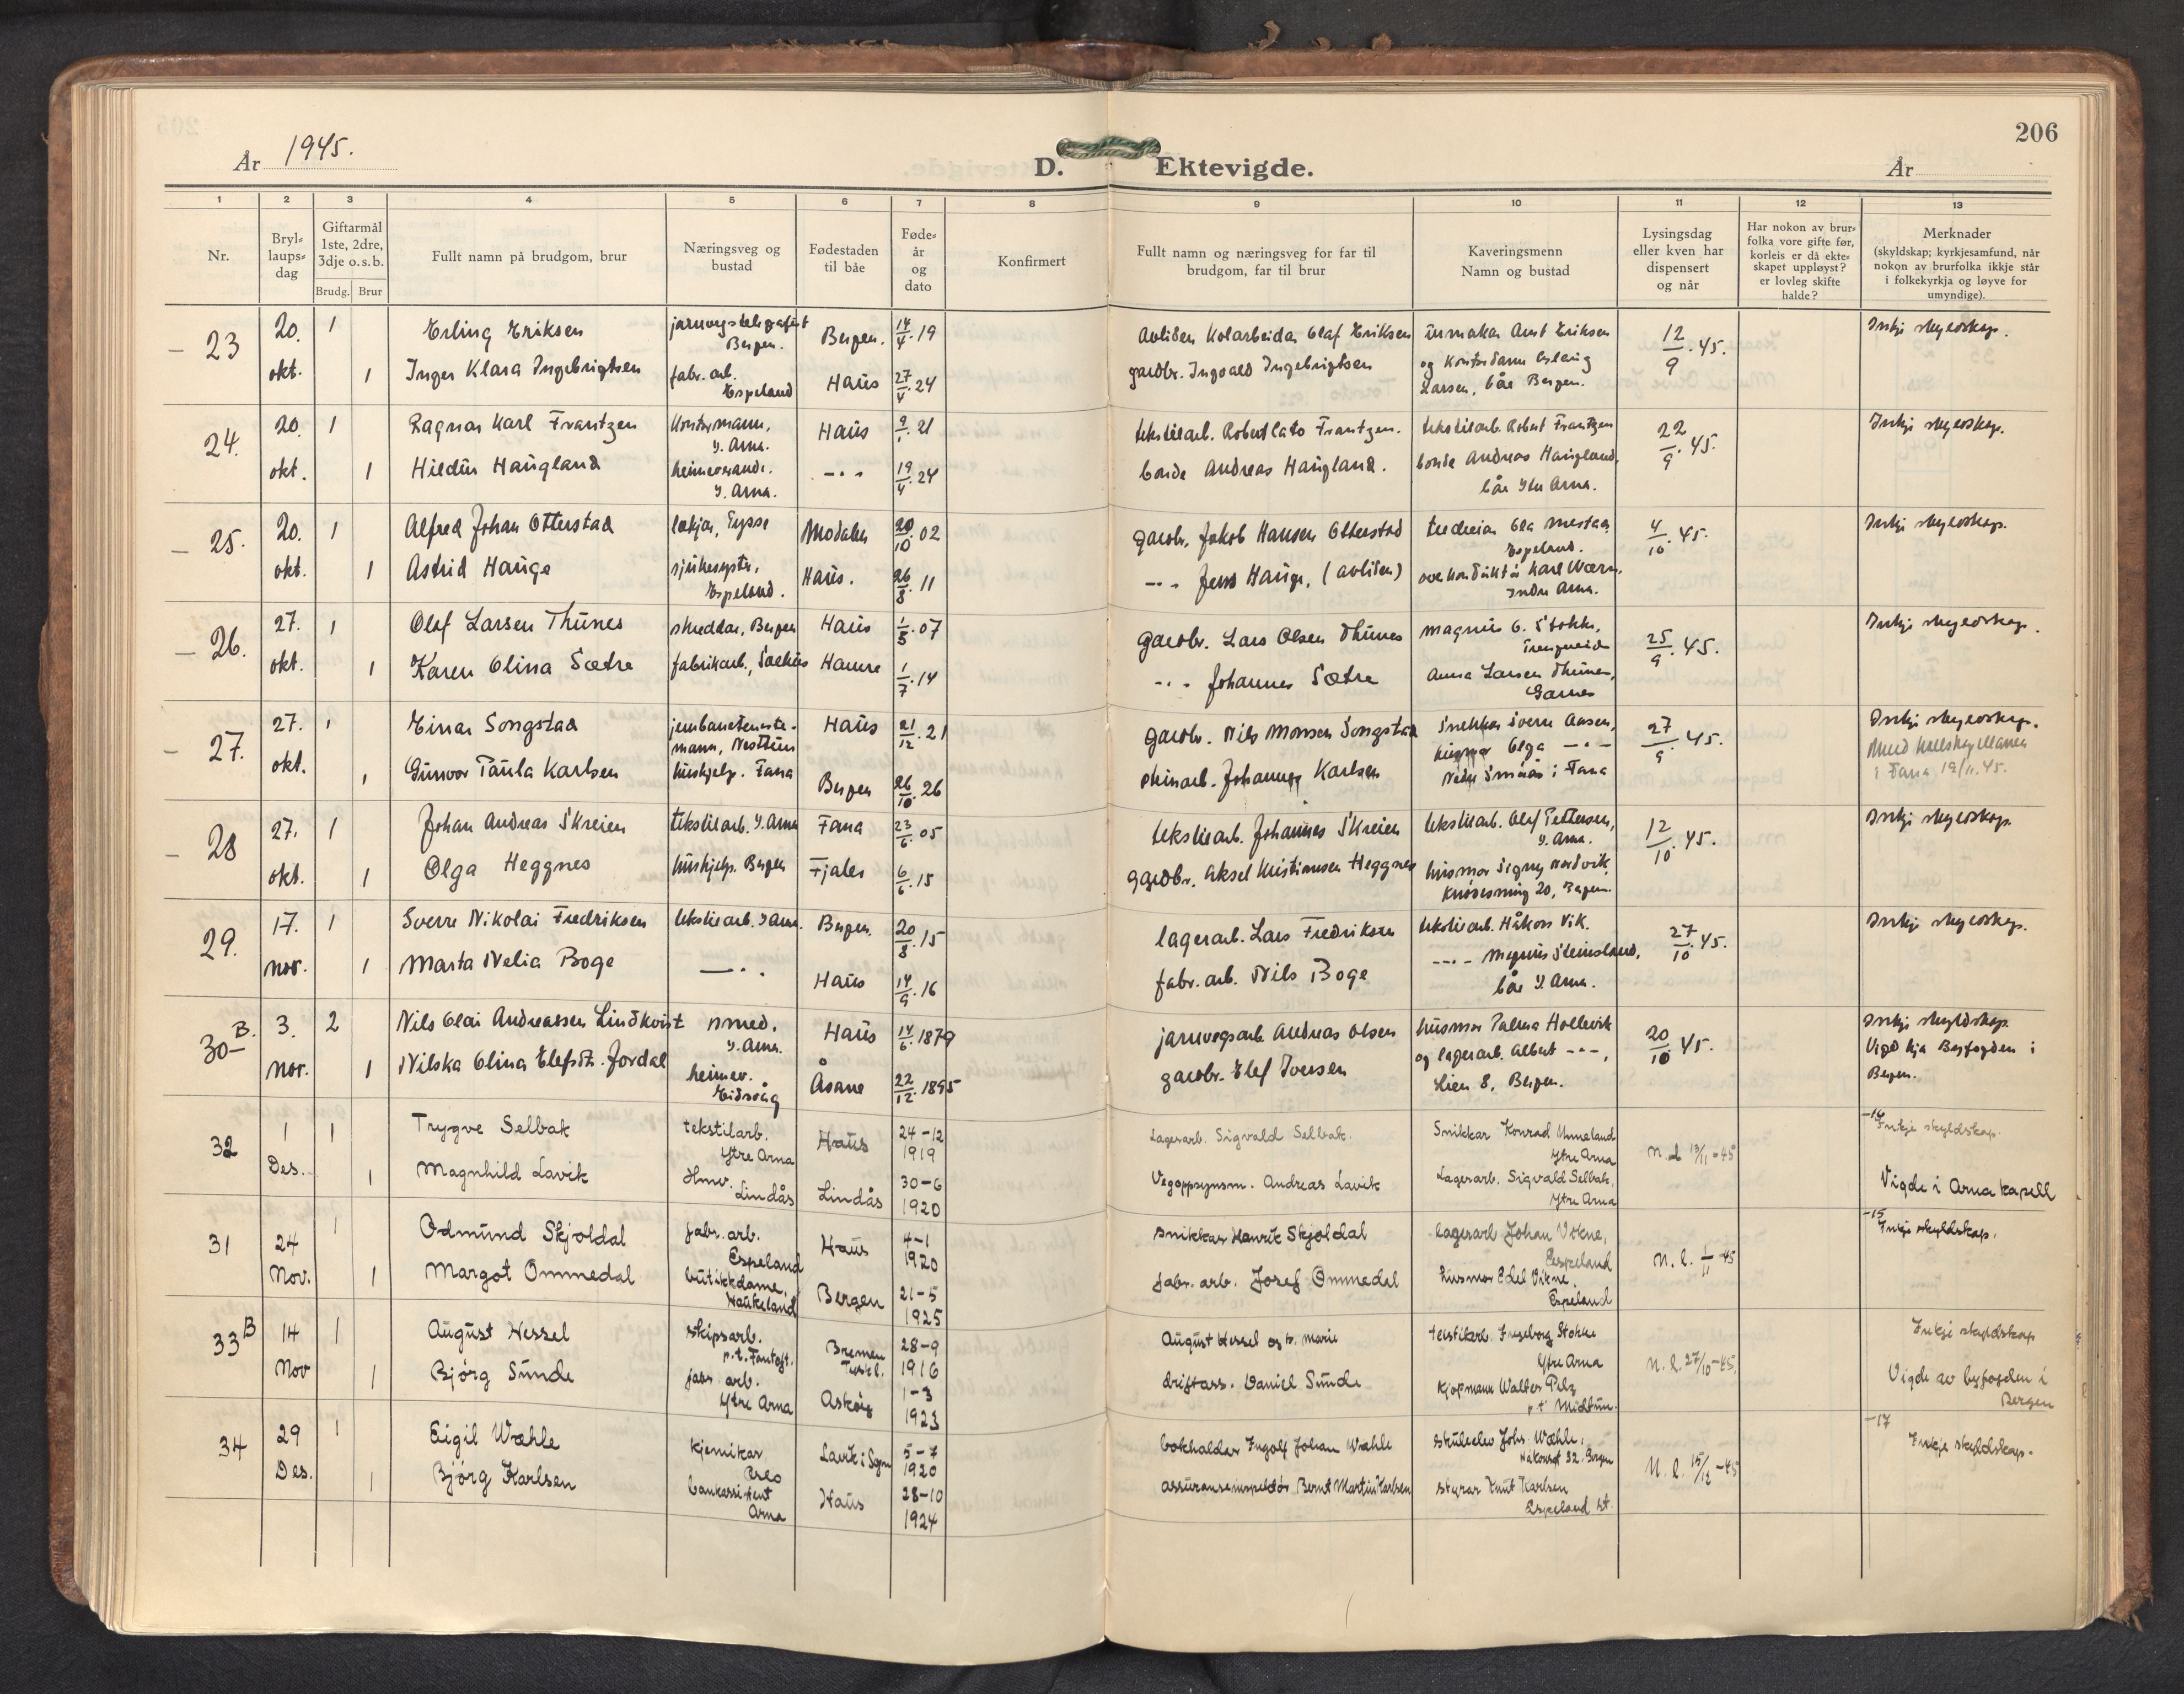 206
År 1945.
D. Ektevigde.
År
1 2 3 4 5 6 7 8 9 10 11 12 13
Nr.
Bryl-
laups-
dag
Giftarmål
1ste, 2dre,
3dje o.s.b.
Brudg. Brur
Fullt namn på brudgom, brur
Næringsveg og
bustad
Fødestaden
til båe
Føde-
år
og
dato
Konfirmert
Fullt namn og næringsveg for far til
brudgom, far til brur
Kaveringsmenn
Namn og bustad
Lysingsdag
eller kven har
dispensert
og når
Har nokon av brur-
folka vore gifte før,
korleis er då ekte-
skapet uppløyst?
er lovleg skifte
halde?
Merknader
(skyldskap; kyrkjesamfund, når
nokon av brurfolka ikkje står
i folkekyrkja og løyve for
umyndige).
23 20. okt. 1 Erling Eriksen jarnvegstelegafist Bergen. Bergen. 14/4.19 Avliden Kolarbeidar Olaf Eriksen urmakar Arnt Eriksen 12/9.45. Inkje skyldskap.
1 Inger Klara Ingebrigtsen fabr. arb. Espeland Haus 27/4.24 gardbr. Ingvald Ingebrigtsen og Kontordame Larsen, båe Bergen.
24. 20. okt. 1 Ragnar Karl Frantzen Kontormann, Y. Arna. Haus 21 tekstilarb. Robert Frantzen. tekstilarb. Robert Frantzen 22/9.45. Inkje skyldskap.
1 Hildur Haugland heimeverande. Y. Arna. -"- 19/4.24 bonde Andreas Haugland. bonde Andreas Haugland, båe Ytre Arna.
25. 20. okt. 1 Alfred Johan Otterstad lækjar, Eysse Modalen 20/10.02 gardbr. Jakob Hansen Otterstad Ola Mestad, Espeland. 4/10.45. Inkje skyldskap.
1 Astrid Hauge sjukesyster, Espeland. Haus. 26/8.11 -"- Jens Hauge, (avliden) overkonduktør Karl Wærn, Indre Arna.
26. 27. okt. 1 Olaf Larsen Thunes skreddar, Bergen Haus 1/5.07 gardbr. Lars Olsen Thunes Magnus O. Stokke, Trengereid 25/9.45. Inkje skyldskap.
1 Karen Olina Sætre fabrikarb., Hamre 1/7.14 -"- Johannes Sætre Anna Larsen Thunes, Garnes
27. 27. okt. 1 Einar Songstad jernbaneteneste-mann, Nesttun Haus 21/12.21 gardbr. Nils Monsen Songstad Snekkar Sverre Aasen, 27/9.45. Inkje skyldskap.
1 Gunvor Paula Karlsen hushjelp. Fana Bergen 26/10.26 steinarb. Johannes Karlsen husmor Olga -"- Nedre Smaås i Fana i Fana 19/11.45.
28 27. okt. 1 Johan Andreas Skreien tekstilarb. Y. Arna Fana 23/6.05 tekstilarb. Johannes Skreien tekstilarb. Olaf Pettersen, Y. Arna. 12/10.45. Inkje skyldskap.
1 Olga Heggnes hushjelp. Bergen Fjaler 6/6.15 gardbr. Aksel Kristiansen Heggnes husmor Signy Nordvik, Knøsesmug 20, Bergen.
29. 17. nov. 1 Sverre Nikolai Fredriksen tekstilarb. Y Arna. Bergen. 20/8.15 lagerarb. Lars Fredriksen tekstilarb. Håkon Vik. 27/10.45. Inkje skyldskap.
1 Marta Nelia Boge -"- Haus 14/9.16 fabr. arb. Nils Boge -"- Magnus Steinsland, båe Y. Arna.
30 B. 3. nov. 2 Nils Olai Andreassen Lindkvist smed. Y. Arna. Haus 14/6.1879 jarnvegsarb. Andreas Olsen husmor Palma Hollevik 20/10 45. Inkje skyldskap.
1 Nilska Olina Elefsdt. Jordal heimev. Eidsvåg Åsane 22/12.1895 gardbr. Elef Iversen og lagerarb. Albert -"-, Lien 8, Bergen. Vigd hja Byfogden i Bergen.
32 1 Des. 1 Trygve Selbak tekstilarb. Ytre Arna Haus 24-12 1919 Lagerarb. Sigvald Selbak. Snikkar Konrad Unneland Ytre Arna N. l. 13/11-45 -14 Inkje skyldskap.
1 Magnhild Lavik Hmv. Lindås Lindås 30-6 1920 Vegoppsynsm. Andreas Lavik Lagerarb. Sigvald Selbak, Ytre Arna Vigde i Arna kapell
31 24 Nov. 1 Odmund Skjoldal fabr. arb. Espeland Haus 4-1 1920 snikkar Henrik Skjoldal lagerarb Johan Vikne, Espeland N. l. 1/11-45 -15 Inkje skyldskap.
1 Margot Ommedal butikkdame, Haukeland Bergen 21-5 1925 fabr. arb. Josef Ommedal husmor Edel Vikne, Espeland
33 B 14 Nov 1 August Wessel skipsarb. p.t. Fantoft. Bremen Tyskl. 28-9 1916 August Wessel og h. Marie tekstilarb. Ingeborg Stokke Ytre Arna N. l. 27/10-45. Inkje skyldskap
1 Bjørg Sunde fabr. arb. Ytre Arna Askøy 1-3 1923 driftass. Daniel Sunde Kjøpmann Walter Pelz p.t. Midtun. Vigde av byfogden i Bergen
34 29 Des. 1 Eigil Wæhle kjemikar Oslo Lavik i Sogn 5-7 1920 bokhaldar Ingolf Johan Wæhle skuleelev Johs. Wæhle, Håkonsgt 32. Bergen N. l. 15/12-45 -17 Inkje skyldskap.
1 Bjørg Karlsen bankassistent Arna Haus 28-10 1924 assuranseinspektør Bernt Martin Karlsen styrar Knut Karlsen Espeland st.